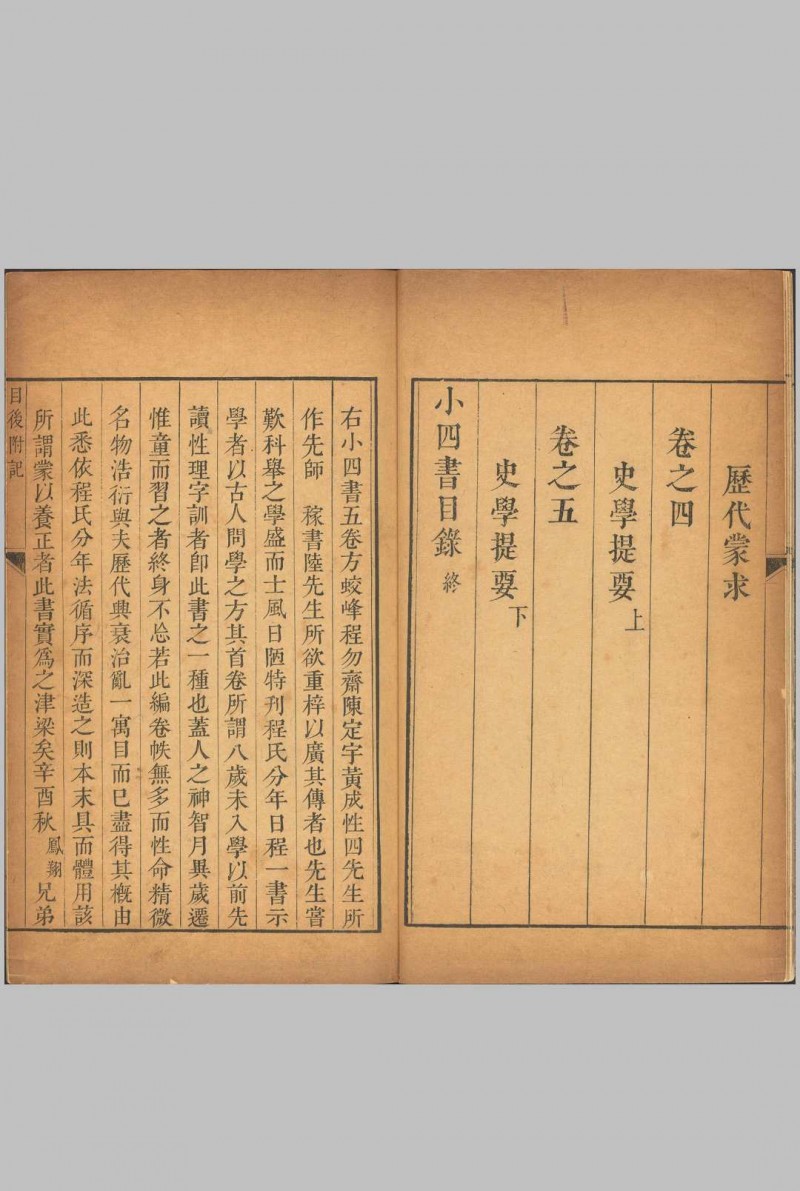 歷代蒙求
卷之四
史學提要上
卷之五
史學提要下
小四書目錄終
右小四書五卷方蛟峰程勿齋陳定宇黃成性四先生所
作先師　稼書陸先生所欲重梓以廣其傳者也先生嘗
歎科舉之學盛而士風日陋特刊程氏分年日程一書示
學者以古人問學之方其首卷所謂八歲未入學以前先
讀性理字訓者卽此書之一種也蓋人之神智月異歲遷
惟童而習之者終身不忘若此編卷帙無多而性命精微
名物浩衍與夫歷代興衰治亂一寓目而已盡得其槪由
此悉依程氏分年法循序而深造之則本末具而體用該
所謂蒙以養正者此書實爲之津梁矣辛酉秋鳳翔兄弟
目後附記